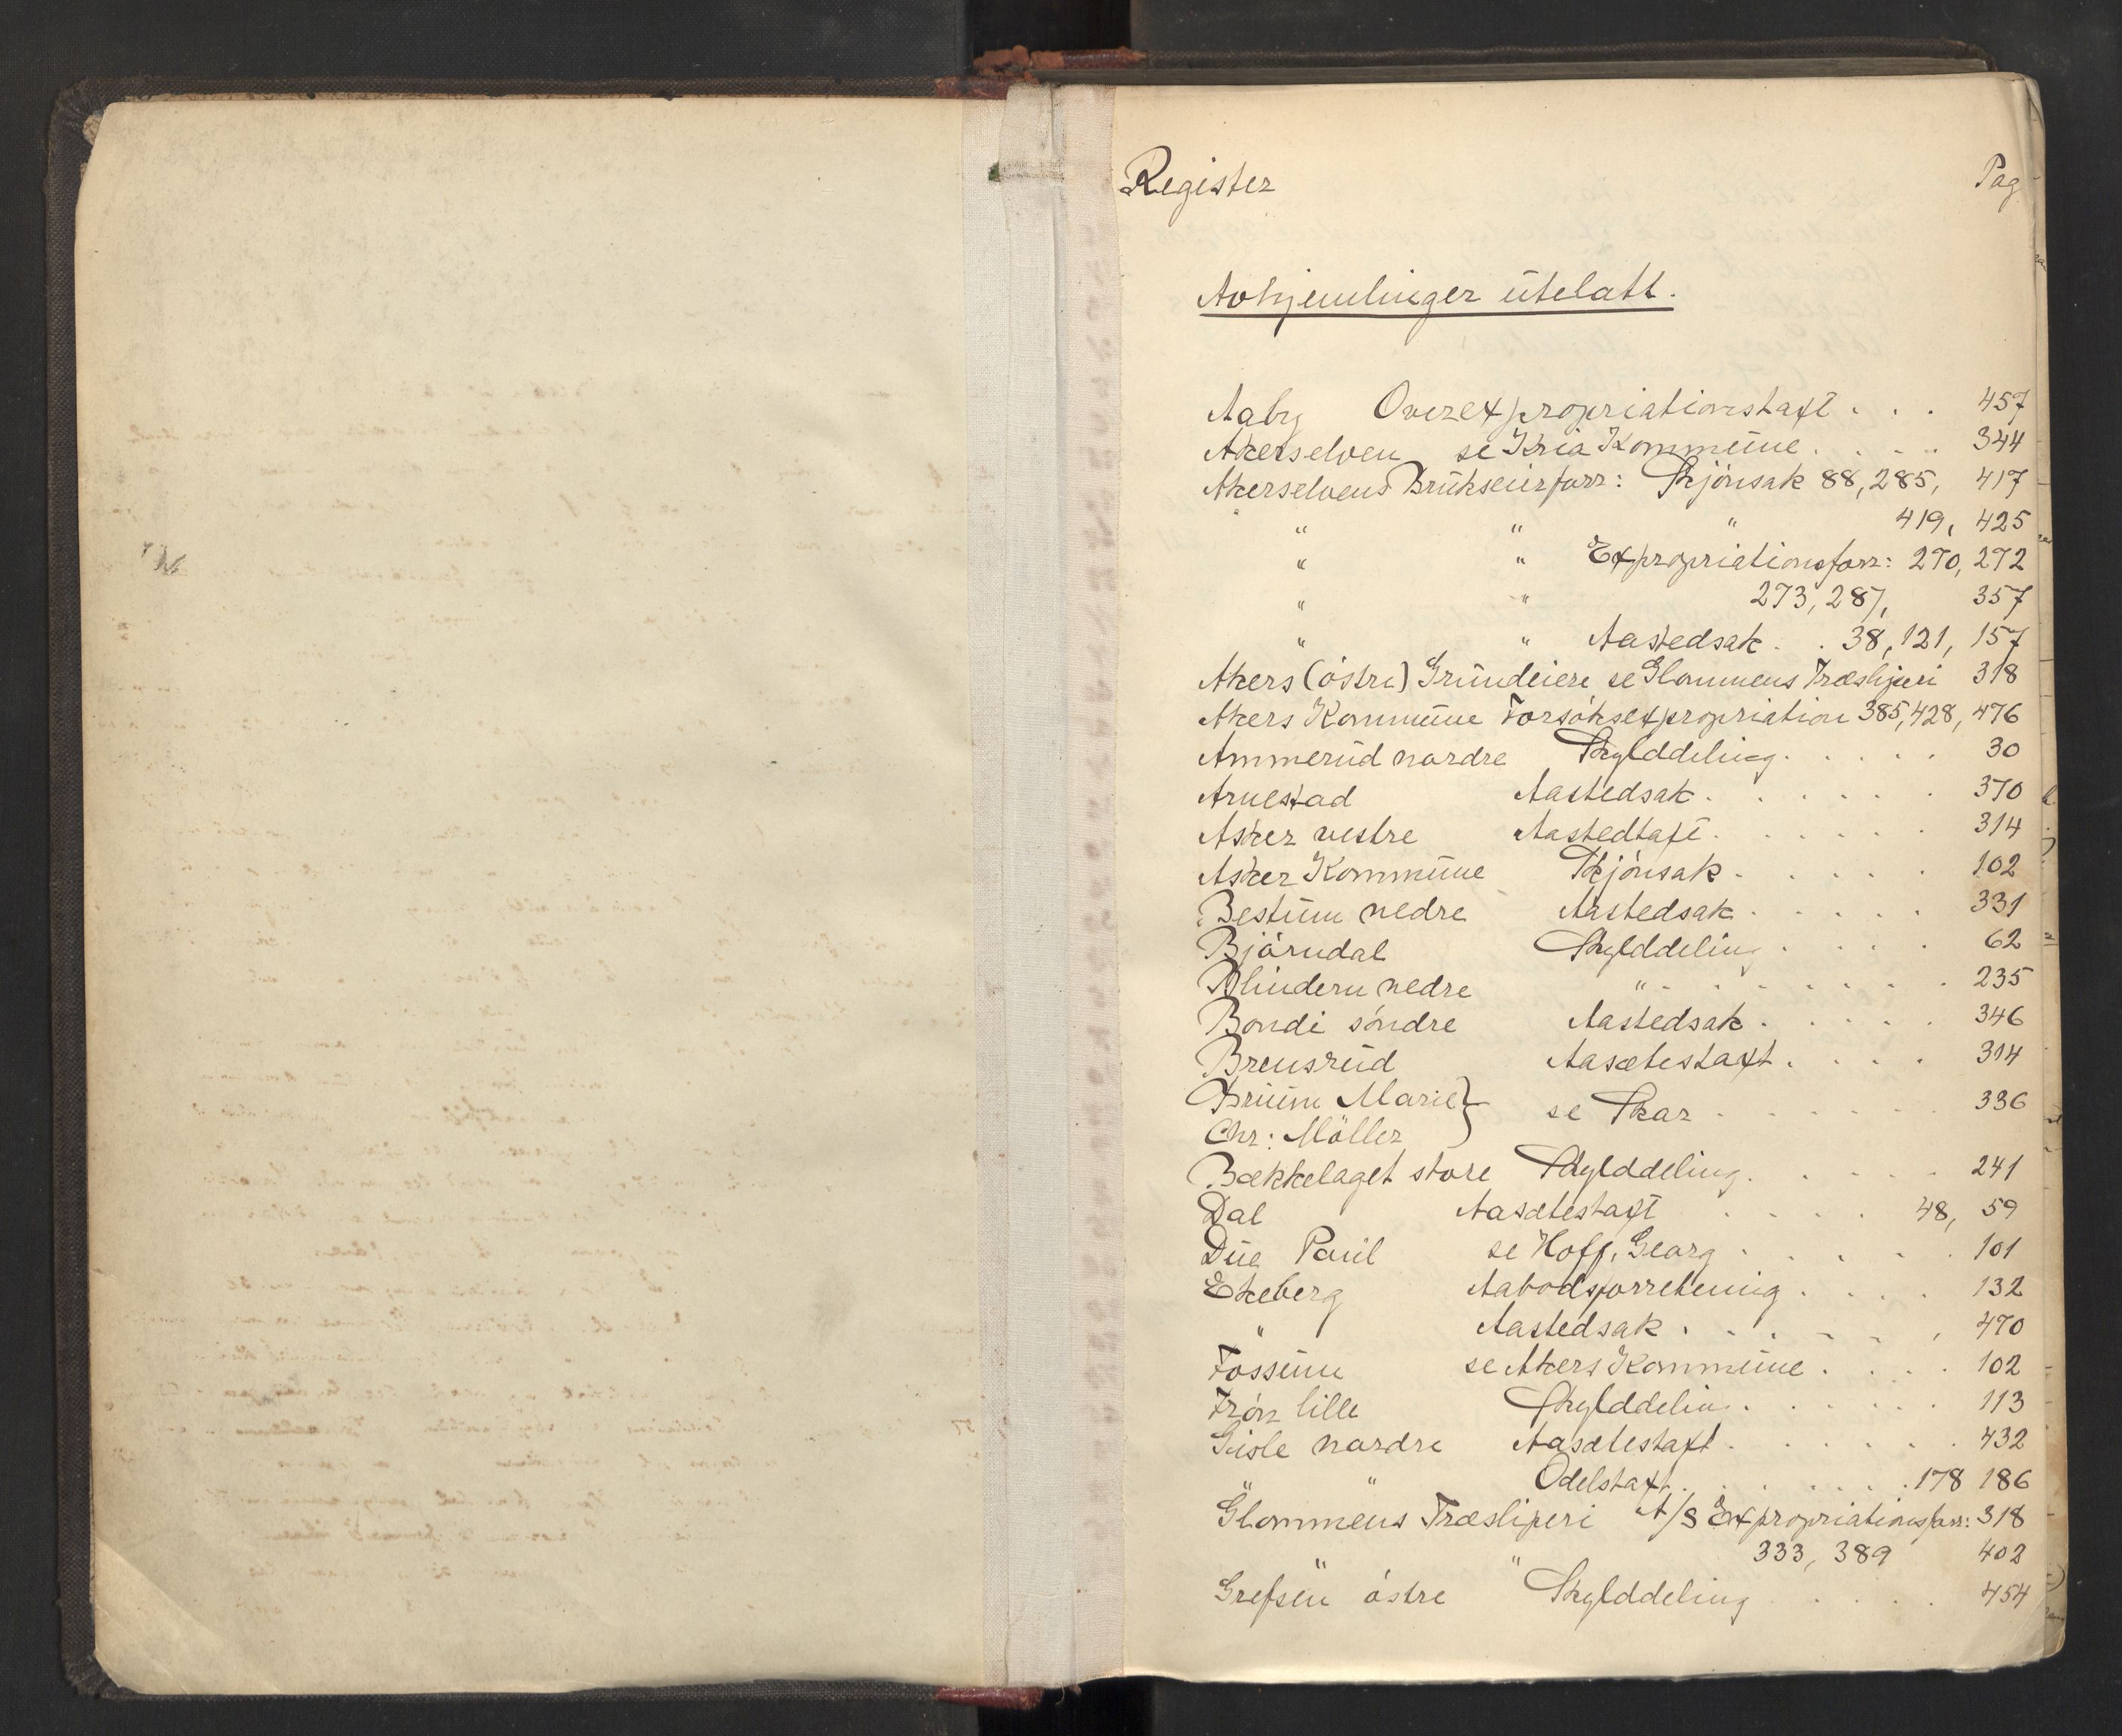 Register Pag
Avhjemlinger utelatt.
Aaby Overexpropriationstaxt . . . 457
Akerselven se Kria Kommune . . . . 344
Akerselvens Brukseierforr: Skjönsak 88, 285, 417
" " " 419, 425
" " Expropriationsforr: 270, 272
" " 273, 287, 357
" " Aastedsak . . 38, 121, 157
Akers (östre) Grundeiere se Glommens Træsliperi 318
Akers Kommune Forsöksexpropriation 385, 428, 476
Ammerud nordre Skylddeling . . . . . 30
Arnestad Aastedsak . . . . . . 370
Asker vestre Aastedtaxt . . . . . . 314
Asker Kommune Skjönsak . . . . . 102
Bestum nedre Aastedsak . . . . . 331
Björndal Skylddeling . . . . 62
Blindern nedre " . . . . . . . . 235
Bondi söndre Aastedsak . . . . . 346
Brensrud Aasætestaxt . . . . 314
Bruun Marie } se Skar . . . . . . 336
Chr: Möller
Bækkelaget store Skylddeling . . . . . 241
Dal Aasætestaxt . . . . 48, 59
Due Paul se Hoff, Georg . . . . . . 101
Ekeberg Aabodsforretning . . . . 132
" Aastedsak . . . . . . 470
Fossum se Akers Kommune . . . . 102
Frön lille Skylddeling . . . . . . 113
Gisle nordre Aasætestaxt . . . . . . . 432
" " Odelstaxt . . . . . . 178 186
Glommens Træsliperi A/S Expropriationsforr: 318
" " 333, 389 402
Grefsen östre Skylddeling . . . . . 454